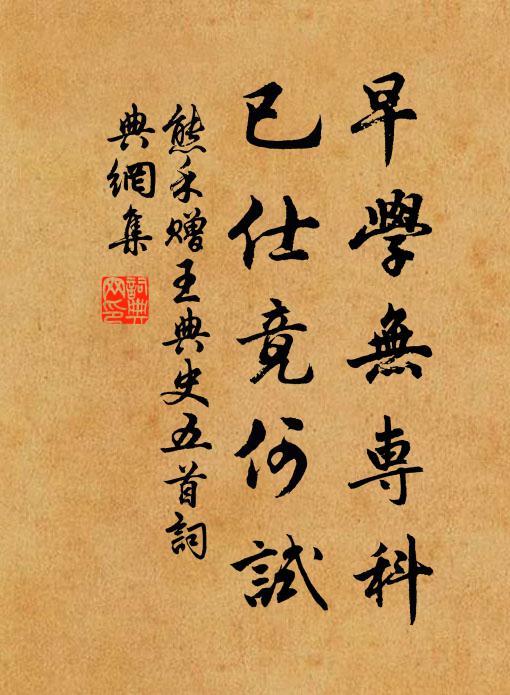 早學無專科
已仕竟何試
熊禾贈王典史五首詞
典網集
詞典網印